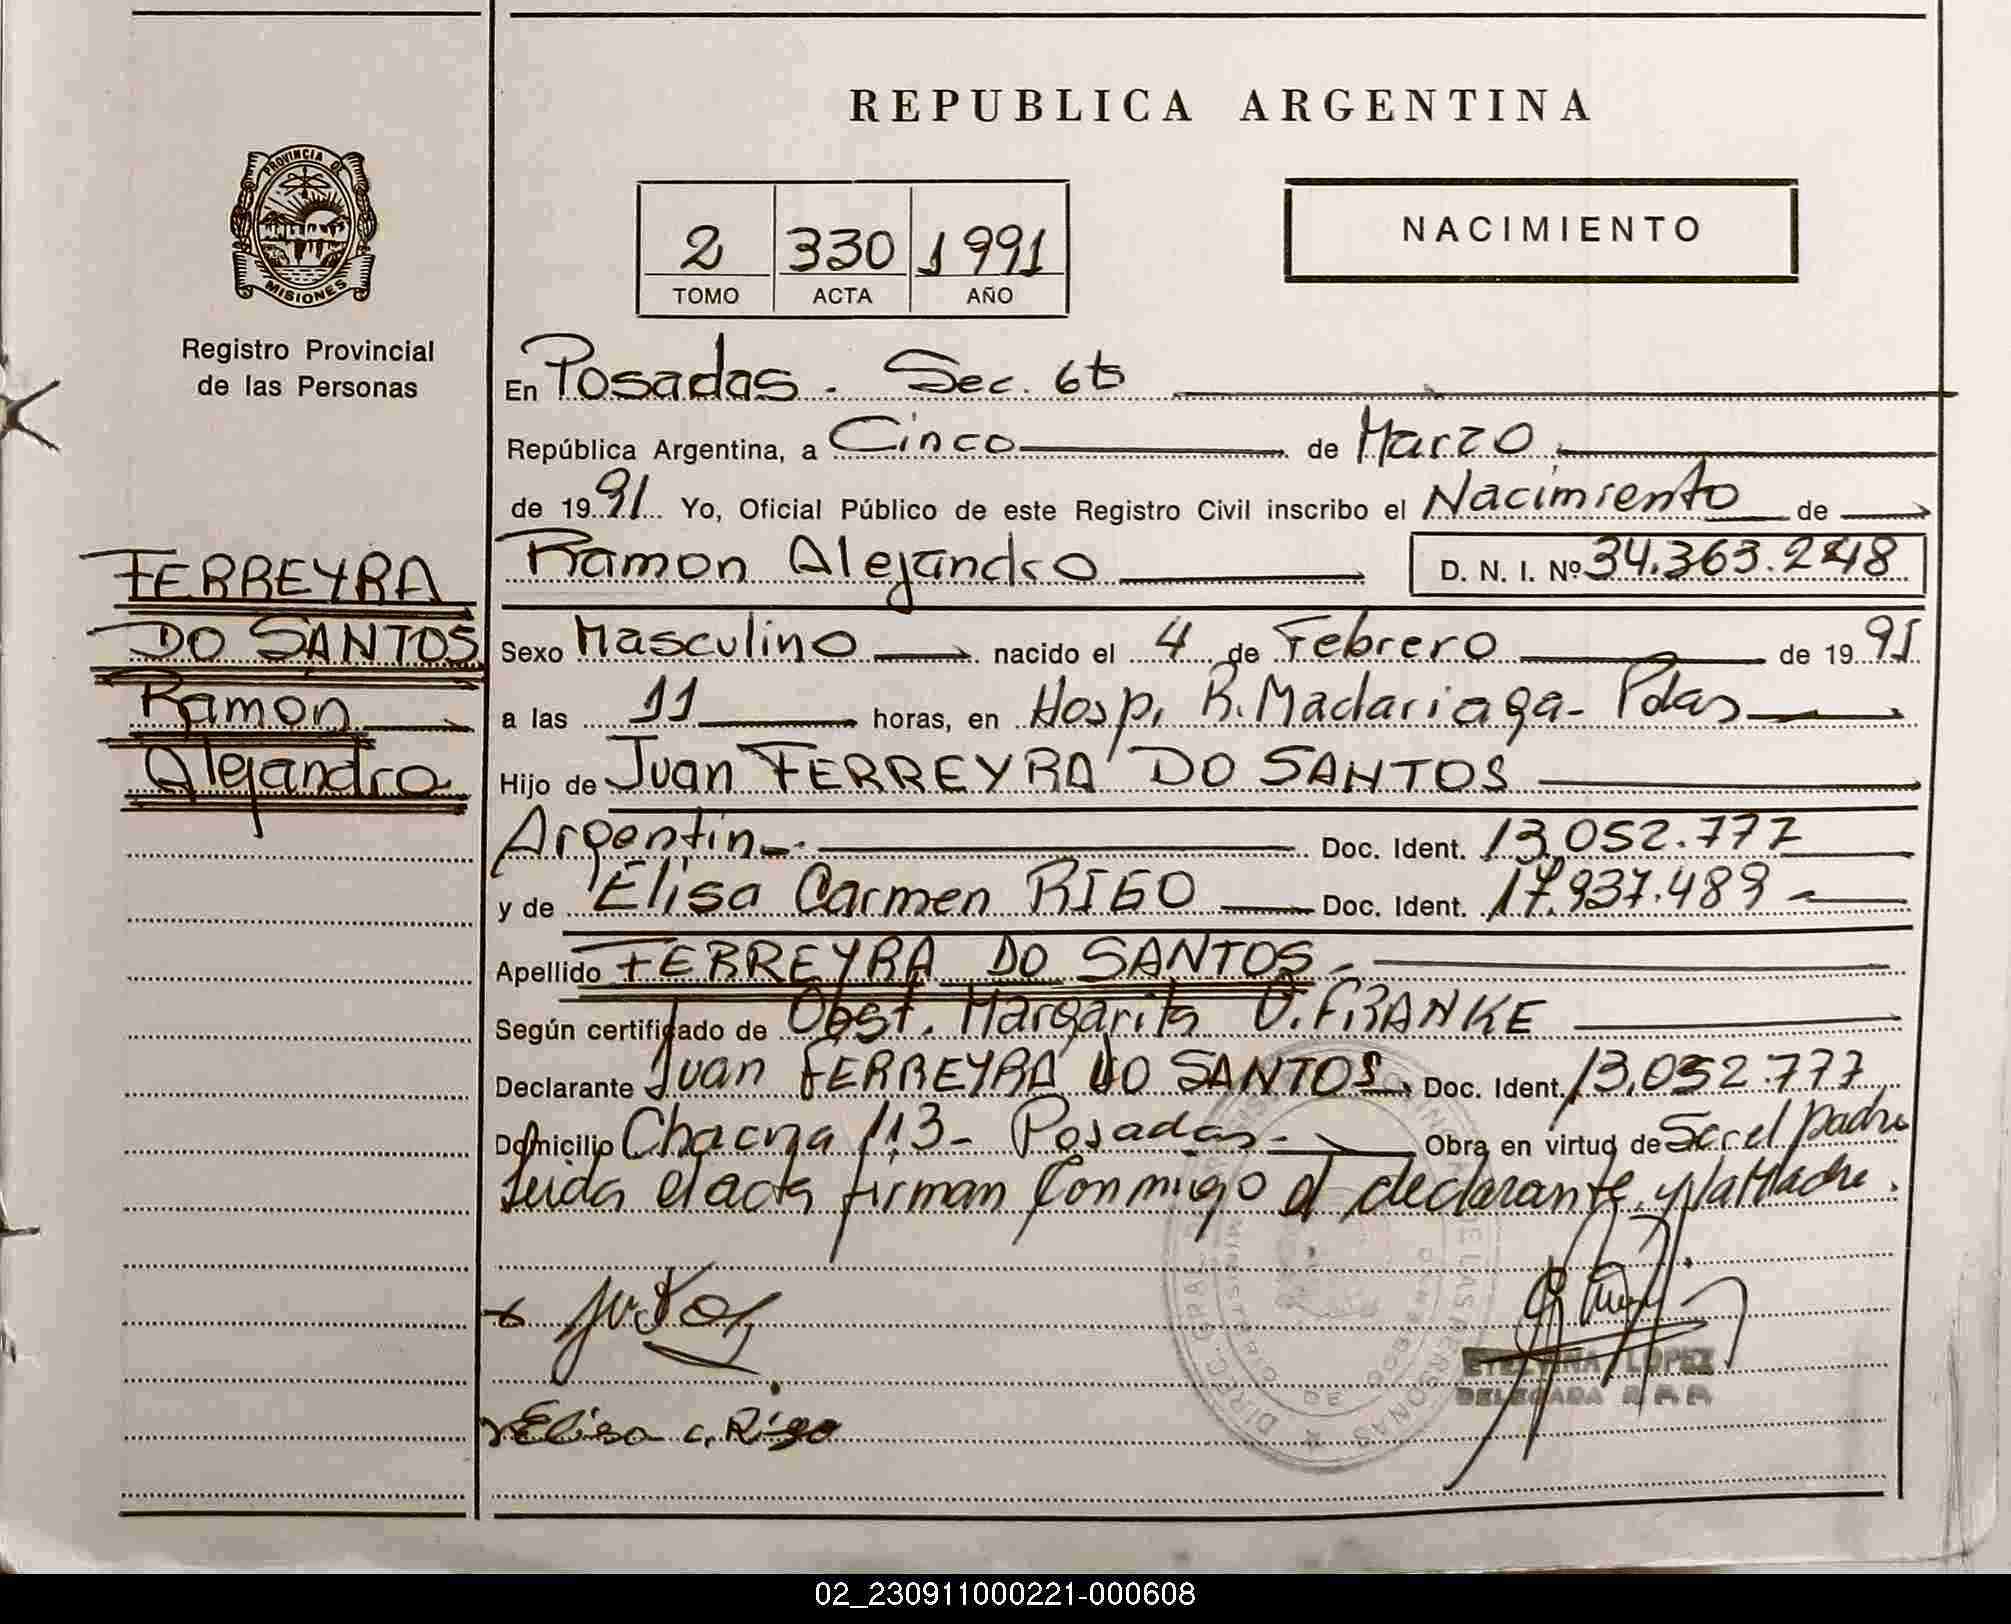 REPUBLICA ARGENTINA
PROVINCIA DE
MISIONES
Registro Provincial
de las Personas
2 330 1991
TOMO ACTA AÑO
NACIMIENTO
FERREYRA
DO SANTOS
Ramon
Alejandro
En Posadas - Sec. 6ta
República Argentina, a Cinco de Marzo
de 1991 Yo, Oficial Público de este Registro Civil inscribo el Nacimiento de
Ramon Alejandro D. N. I. Nº 34.363.248
Sexo Masculino nacido el 4 de Febrero de 1991
a las 11 horas, en Hosp. R. Madariaga - Pdas
Hijo de Juan FERREYRA DO SANTOS
Argentin Doc. Ident. 13.052.777
y de Elisa Carmen RIGO Doc. Ident. 17.937.489
Apellido FERREYRA DO SANTOS
Según certificado de Obst. Margarita O. FRANKE
Declarante Juan FERREYRA DO SANTOS Doc. Ident. 13.052.777
Domicilio Chacra 113 - Posadas - Obra en virtud de Ser el padre
Leida el acta firman conmigo el declarante y la Madre.
Elisa C. Rigo
ETELVINA LOPEZ
DELEGADA
02_230911000221-000608